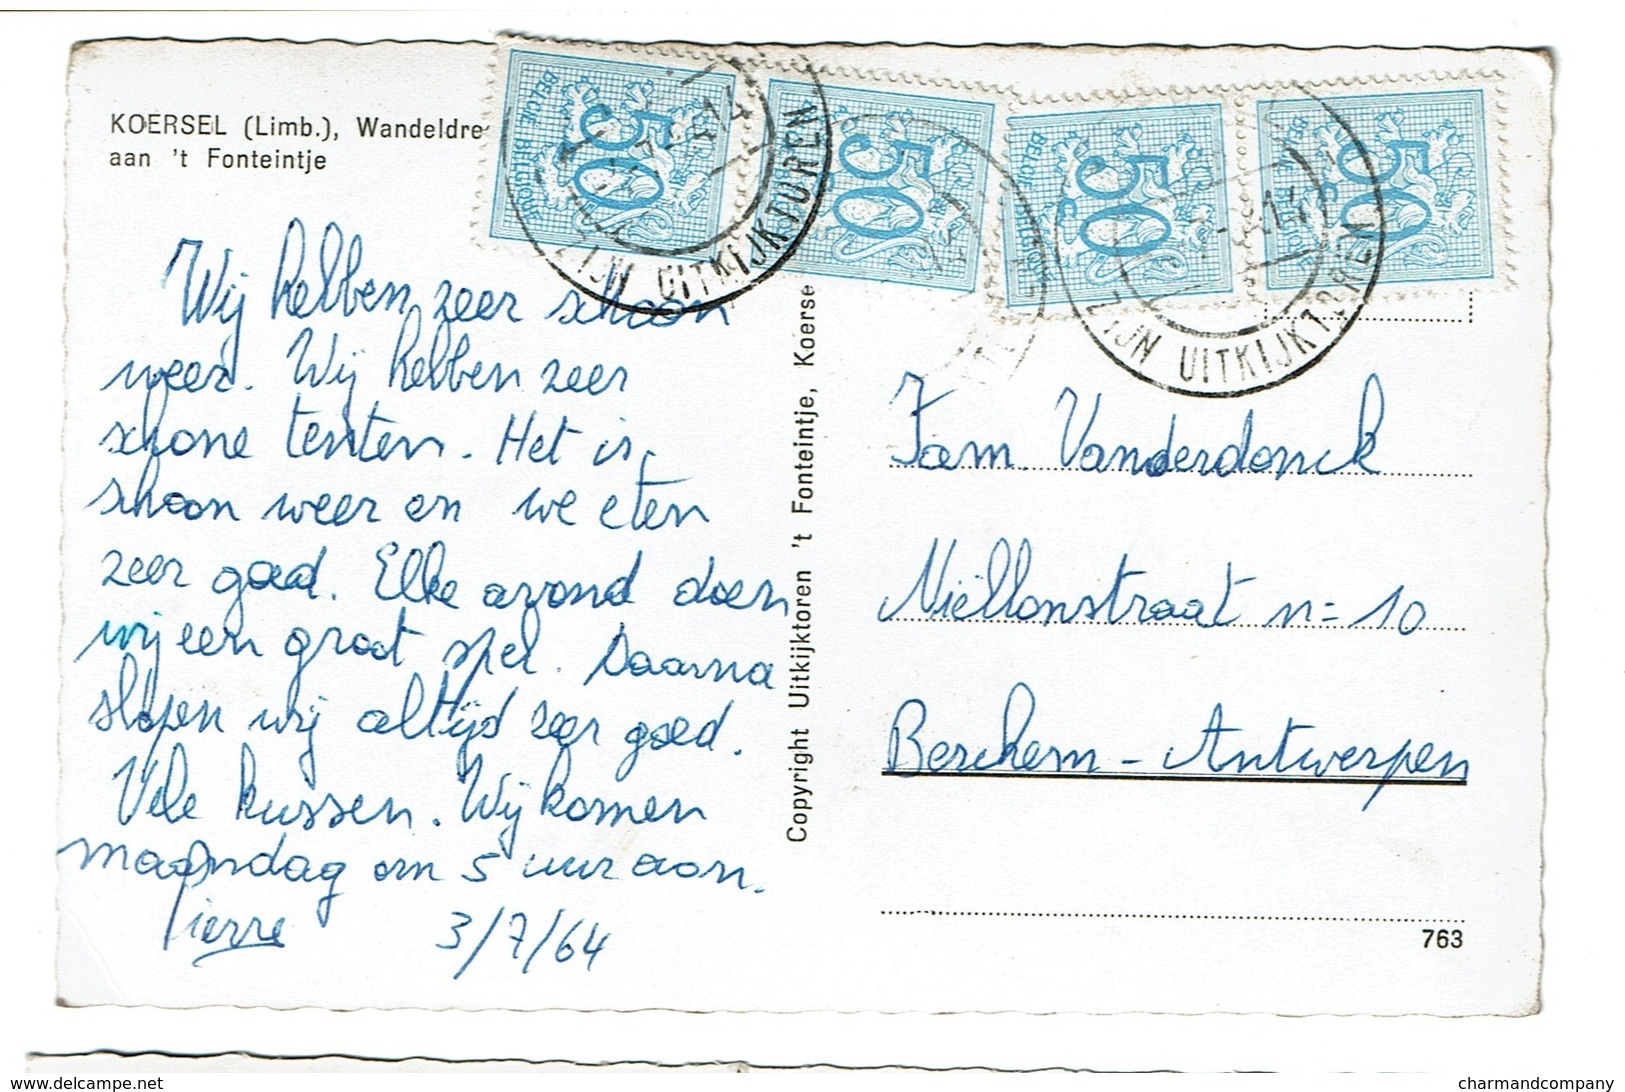 KOERSEL (Limb.), Wandeldre
aan 't Fonteintje
Wij hebben zeer schoon
weer. Wij hebben zeer
schone tenten. Het is
schoon weer en we eten
zeer goed. Elke avond doen
wij een groot spel. Daarna
slapen wij altijd zeer goed.
Vele kussen. Wij komen
maandag om 5 uur aan.
Pierre 3/7/64
Copyright Uitkijktoren 't Fonteintje, Koerse
50
BELGIE BELGIQUE
50
50
BELGIE BELGIQUE
50
BELGIE BELGIQUE
ZIJN UITKIJKTOREN
ZIJN UITKIJKTOREN
Fam. Vanderdonck
Niëllonstraat n= 10
Berchem - Antwerpen
763
delcampe.net
charmandcompany